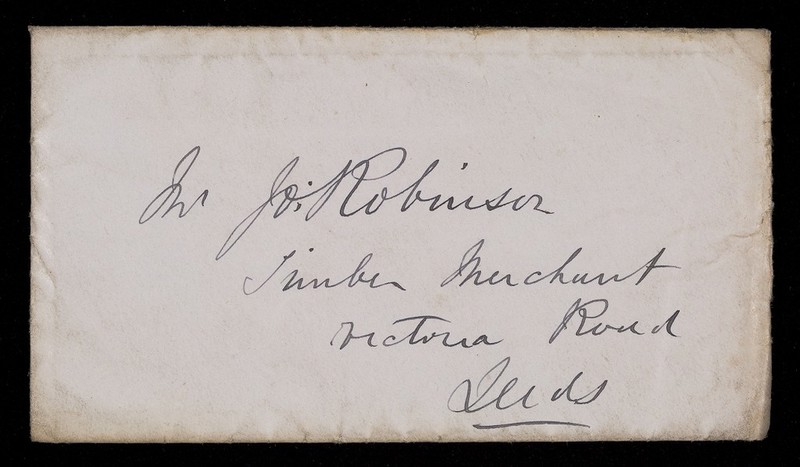 Mr Jos: Robinson
Timber Merchant
Victoria Road
Leeds